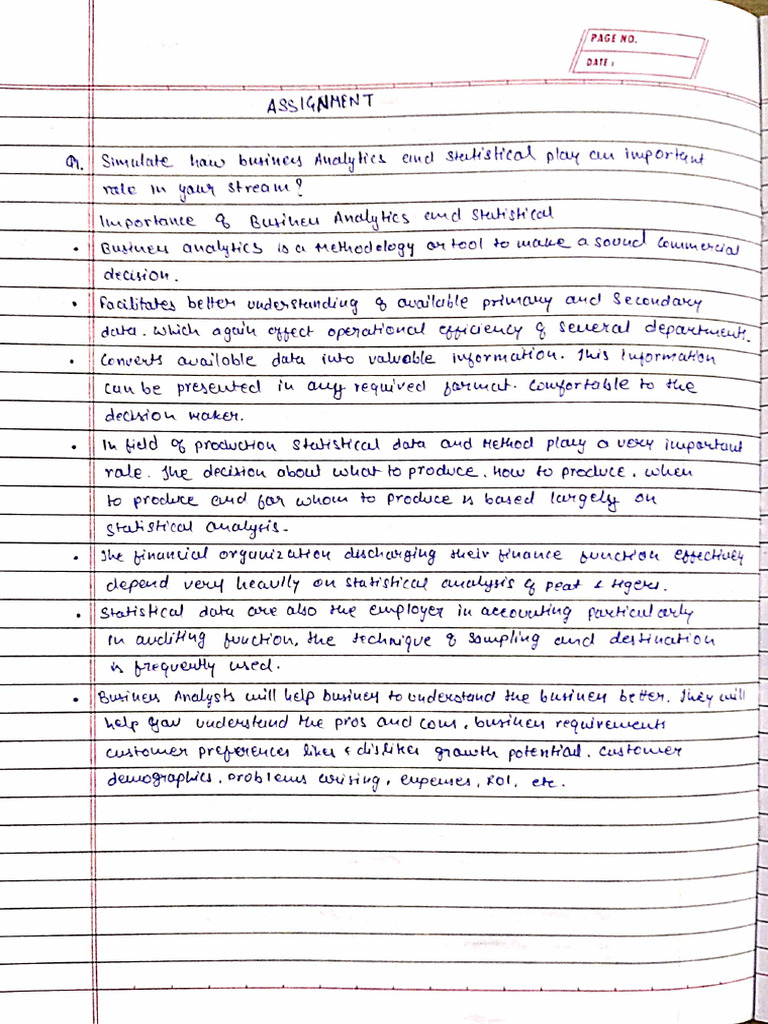 PAGE NO.
DATE :
ASSIGNMENT
Q. Simulate how business Analytics and statistical play an important
role in your stream?
Importance of Business Analytics and statistical
• Business analytics is a methodology or tool to make a sound commercial
decision.
• Facilitates better understanding of available primary and secondary
data. which again effect operational efficiency of several departments.
• Converts available data into valuable information. This information
can be presented in any required format. comfortable to the
decision maker.
• In field of production statistical data and method play a very important
role. The decision about what to produce. how to produce. when
to produce and for whom to produce is based largely on
statistical analysis.
• The financial organization discharging their finance function effectively
depend very heavily on statistical analysis of peat & tigers.
• Statistical data are also the employer in accounting particularly
in auditing function, the technique of sampling and destination
is frequently used.
• Business Analysts will help business to understand the business better. They will
help you understand the pros and cons, business requirements
customer preferences likes & dislikes growth potential. customer
demographics, problems arising, expenses, ROI, etc.